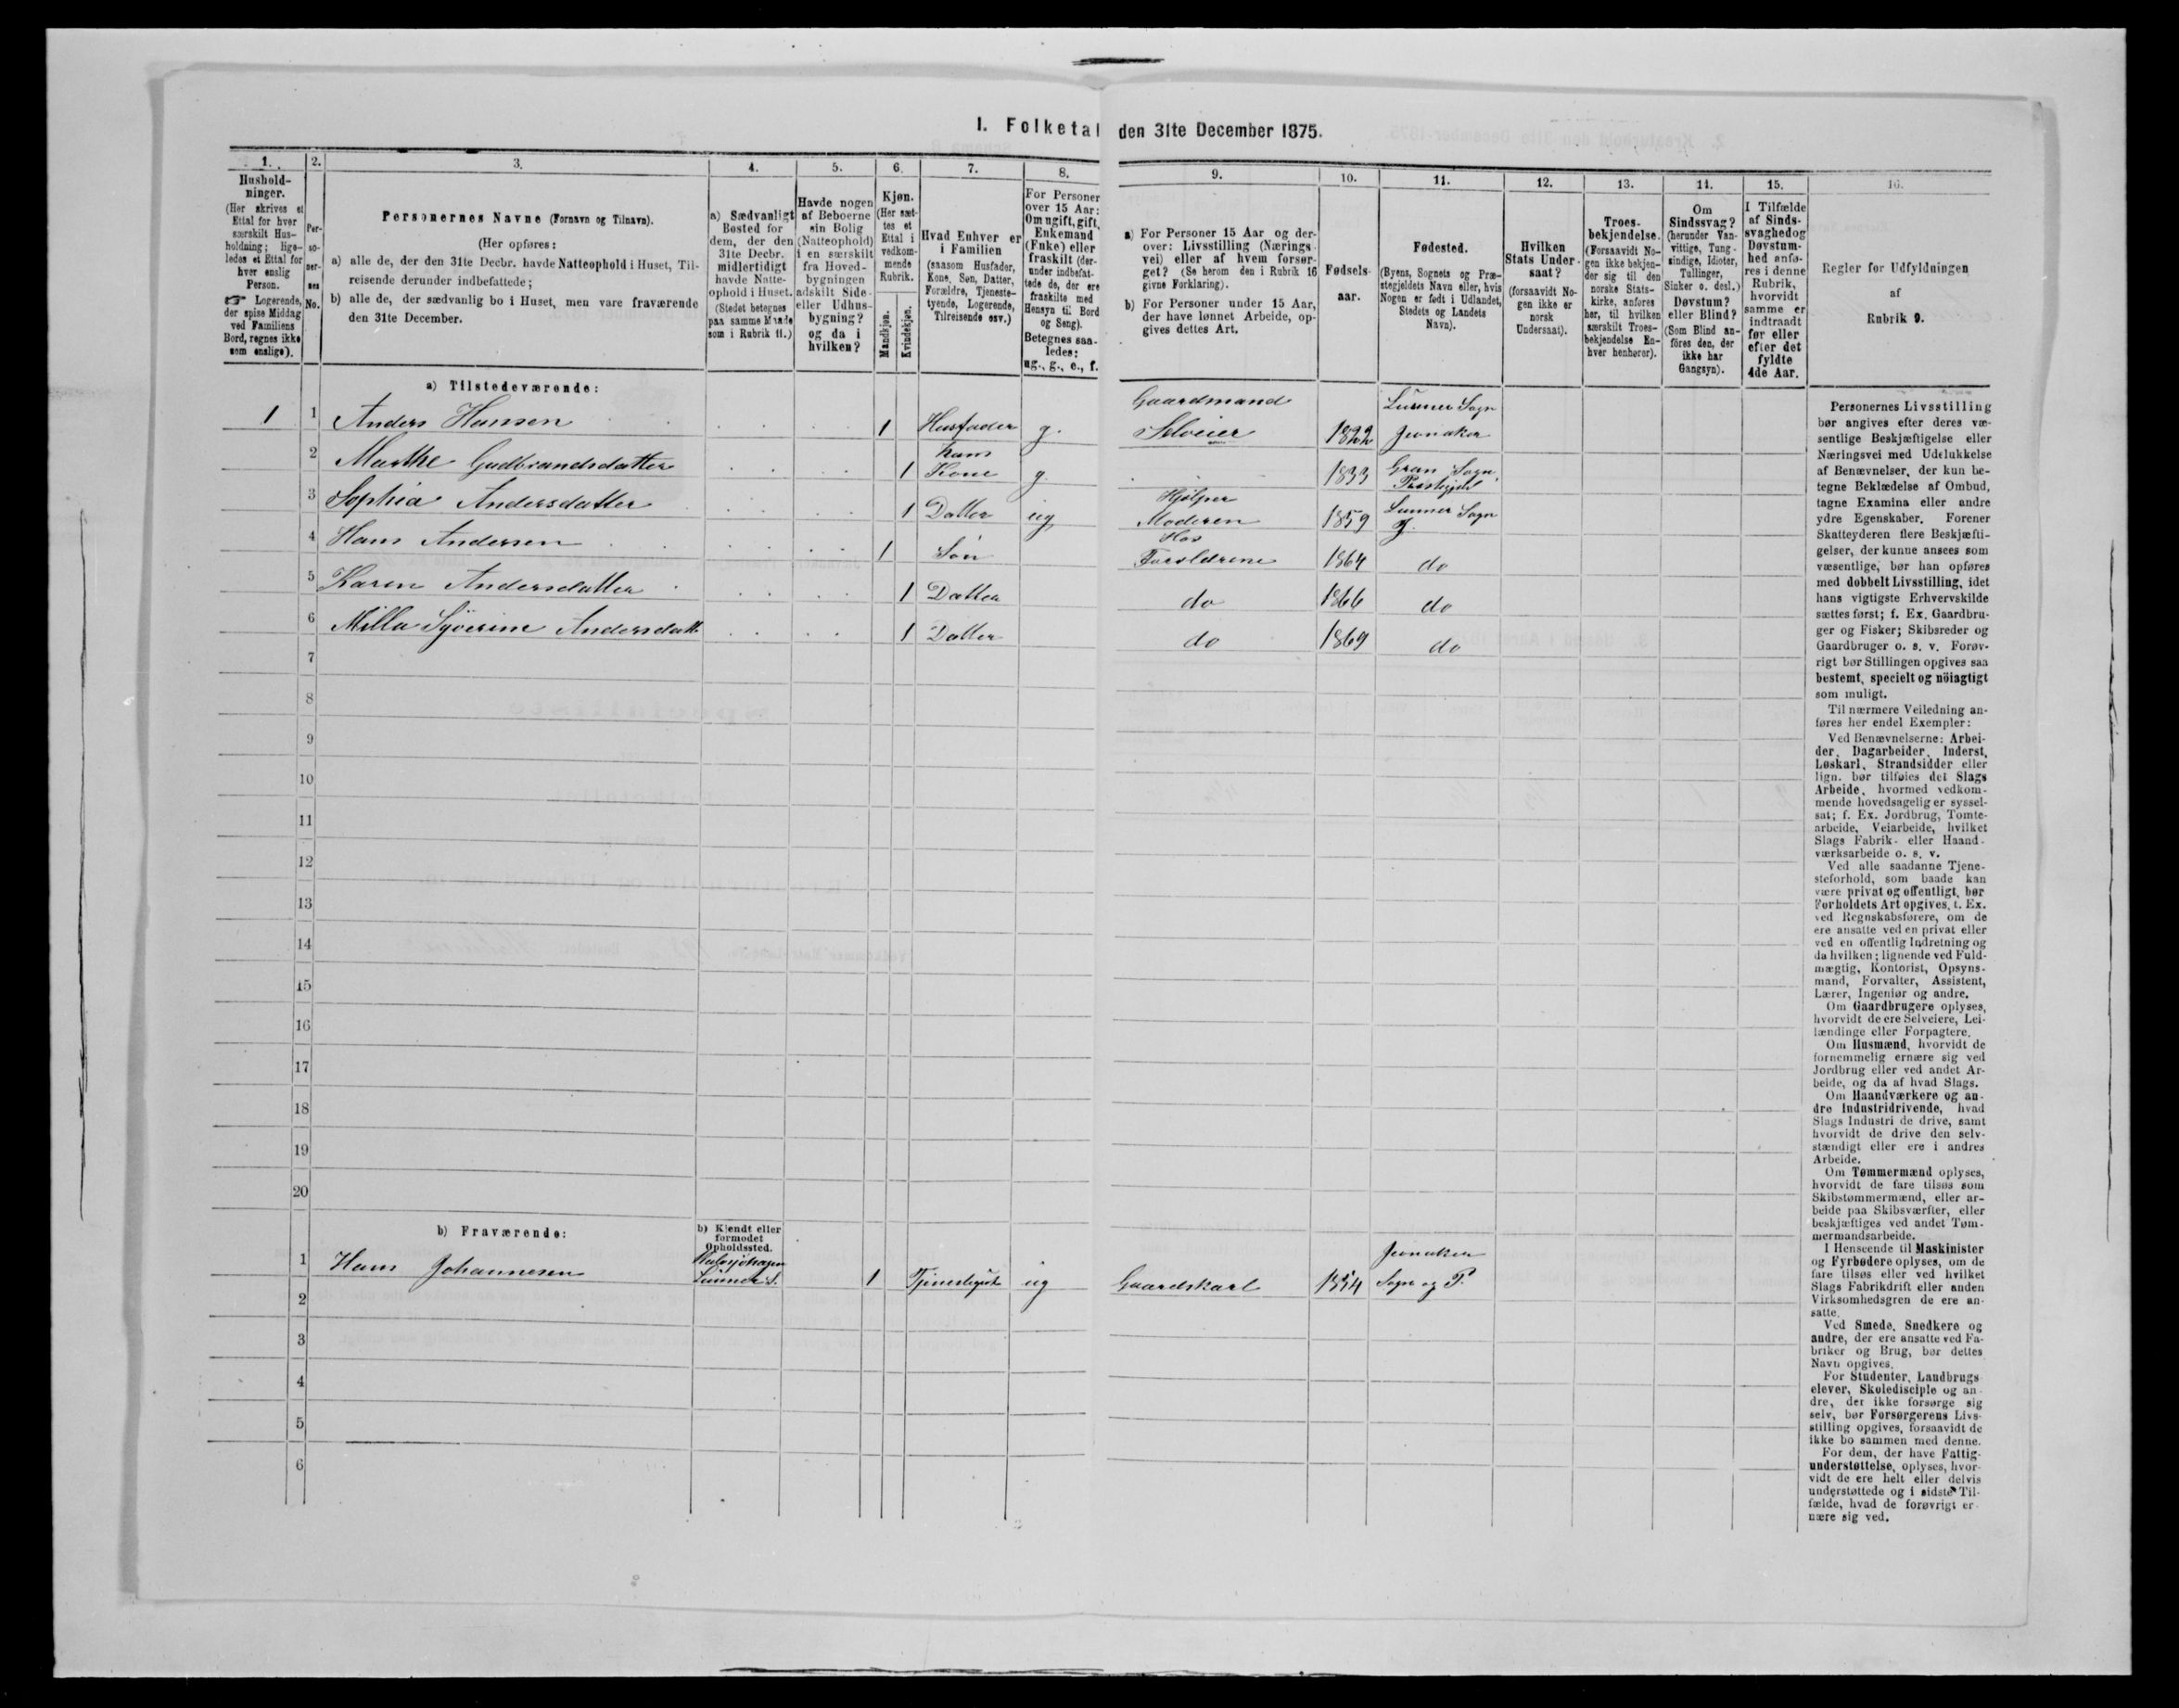 I. Folketal den 31te December 1875.
1.
Hushold-
ninger.
(Her skrives et
Ettal for hver
særskilt Hus-
holdning; lige-
ledes et Ettal for
hver enslig
Person.
☞ Logerende,
der spise Middag
ved Familiens
Bord, regnes ikke
som enslige).
2.
Per-
so-
ner-
nes
No.
3.
Personernes Navne (Fornavn og Tilnavn).
(Her opføres:
a) alle de, der den 31te Decbr. havde Natteophold i Huset, Til-
reisende derunder indbefattede;
b) alle de, der sædvanlig bo i Huset, men vare fraværende
den 31te December.
4.
a) Sædvanligt
Bosted for
dem, der den
31te Decbr.
midlertidigt
havde Natte-
ophold i Huset.
(Stedet betegnes
paa samme Maade
som i Rubrik 11.)
5.
Havde nogen
af Beboerne
sin Bolig
(Natteophold)
i en særskilt
fra Hoved-
bygningen
adskilt Side-
eller Udhus-
bygning?
og da i
hvilken?
6.
Kjøn.
(Her sæt-
tes et
Ettal i
vedkom-
mende
Rubrik.
Mandkjøn.
Kvindekjøn.
7.
Hvad Enhver er
i Familien
(saasom Husfader,
Kone, Søn, Datter,
Forældre, Tjeneste-
tyende, Logerende,
Tilreisende osv.)
8.
For Personer
over 15 Aar:
Om ugift, gift,
Enkemand
(Enke) eller
fraskilt (der-
under indbefat-
tede de, der ere
fraskilte med
Hensyn til Bord
og Seng).
Betegnes saa-
ledes:
ug., g., e., f.
9.
a) For Personer 15 Aar og der-
over: Livsstilling (Nærings-
vei) eller af hvem forsør-
get? (Se herom den i Rubrik 16
givne Forklaring).
b) For Personer under 15 Aar,
der have lønnet Arbeide, op-
gives dettes Art.
10.
Fødsels-
aar.
11.
Fødested.
(Byens, Sognets og Præ-
stegjeldets Navn eller, hvis
Nogen er født i Udlandet,
Stedets og Landets
Navn).
12.
Hvilken
Stats Under-
saat?
(forsaavidt No-
gen ikke er
norsk
Undersaat).
13.
Troes-
bekjendelse.
(Forsaavidt No-
gen ikke bekjen-
der sig til den
norske Stats-
kirke, anføres
her, til hvilken
særskilt Troes-
bekjendelse En-
hver henhører).
14.
Om
Sindssvag?
(herunder Van-
vittige, Tung-
sindige, Idioter,
Tullinger,
Sinker o. desl.)
Døvstum?
eller Blind?
(Som Blind an-
føres den, der
ikke har
Gangsyn).
15.
I Tilfælde
af Sinds-
svaghed og
Døvstum-
hed anfø-
res i denne
Rubrik,
hvorvidt
samme er
indtraadt
før eller
efter det
fyldte
4de Aar.
16.
Regler for Udfyldningen
af
Rubrik 9.
a) Tilstedeværende:
Gaardmand Lunner Sogn
1 1 Anders Hansen 1 Husfader g. Selveier 1822 Jevnaker
hans Gran Sogn
2 Marthe Gudbrandsdatter 1 Kone g 1833 Præstegjeld
Hjelper Lunner Sogn
3 Sophia Andersdatter 1 Datter ug Moderen 1859
Hos
4 Hans Andersen 1 Søn Forældrene 1864 do
5 Karen Andersdatter 1 Datter do 1866 do
6 Milla Syverine Andersdatt 1 Datter do 1869 do
7
8
9
10
11
12
13
14
15
16
17
18
19
20
b) Fraværende:
b) Kjendt eller
formodet
Opholdssted.
Jevnaker
1 Hans Johannesen Lunner S. 1 Tjenestegut ug Gaardskarl 1854 Sogn og P.
2
3
4
5
6
Personernes Livsstilling
bør angives efter deres væ-
sentlige Beskjæftigelse eller
Næringsvei med Udelukkelse
af Benævnelser, der kun be-
tegne Beklædelse af Ombud,
tagne Examina eller andre
ydre Egenskaber. Forener
Skatteyderen flere Beskjæfti-
gelser, der kunne ansees som
væsentlige, bør han opføres
med dobbelt Livsstilling, idet
hans vigtigste Erhvervskilde
sættes først; f. Ex. Gaardbru-
ger og Fisker; Skibsreder og
Gaardbruger o. s. v. Forøv-
rigt bør Stillingen opgives saa
bestemt, specielt og nöiagtigt
som muligt.
Til nærmere Veiledning an-
føres her endel Exempler:
Ved Benævnelserne: Arbei-
der, Dagarbeider, Inderst,
Løskarl, Strandsidder eller
lign. bør tilføies det Slags
Arbeide, hvormed vedkom-
mende hovedsagelig er syssel-
sat; f. Ex. Jordbrug, Tomte-
arbeide, Veiarbeide, hvilket
Slags Fabrik- eller Haand-
værksarbeide o. s. v.
Ved alle saadanne Tjene-
steforhold, som baade kan
være privat og offentligt, bør
Forholdets Art opgives, f. Ex.
ved Regnskabsførere, om de
ere ansatte ved en privat eller
ved en offentlig Indretning og
da hvilken; lignende ved Fuld-
mægtig, Kontorist, Opsyns-
mand, Forvalter, Assistent,
Lærer, Ingeniør og andre.
Om Gaardbrugere oplyses,
hvorvidt de ere Selveiere, Lei-
lændinge eller Forpagtere.
Om Husmænd, hvorvidt de
fornemmelig ernære sig ved
Jordbrug eller ved andet Ar-
beide, og da af hvad Slags.
Om Haandværkere og an-
dre Industridrivende, hvad
Slags Industri de drive, samt
hvorvidt de drive den selv-
stændigt eller ere i andres
Arbeide.
Om Tømmermænd oplyses,
hvorvidt de fare tilsøs som
Skibstømmermænd, eller ar-
beide paa Skibsværfter, eller
beskjæftiges ved andet Tøm-
mermandsarbeide.
I Henseende til Maskinister
og Fyrbødere oplyses, om de
fare tilsøs eller ved hvilket
Slags Fabrikdrift eller anden
Virksomhedsgren de ere an-
satte.
Ved Smede, Snedkere og
andre, der ere ansatte ved Fa-
briker og Brug, bør dettes
Navn opgives.
For Studenter, Landbrugs-
elever, Skoledisciple og an-
dre, der ikke forsørge sig
selv, bør Forsørgerens Livs-
stilling opgives, forsaavidt de
ikke bo sammen med denne.
For dem, der have Fattig-
understøttelse, oplyses, hvor-
vidt de ere helt eller delvis
understøttede og i sidste Til-
fælde, hvad de forøvrigt er-
nære sig ved.